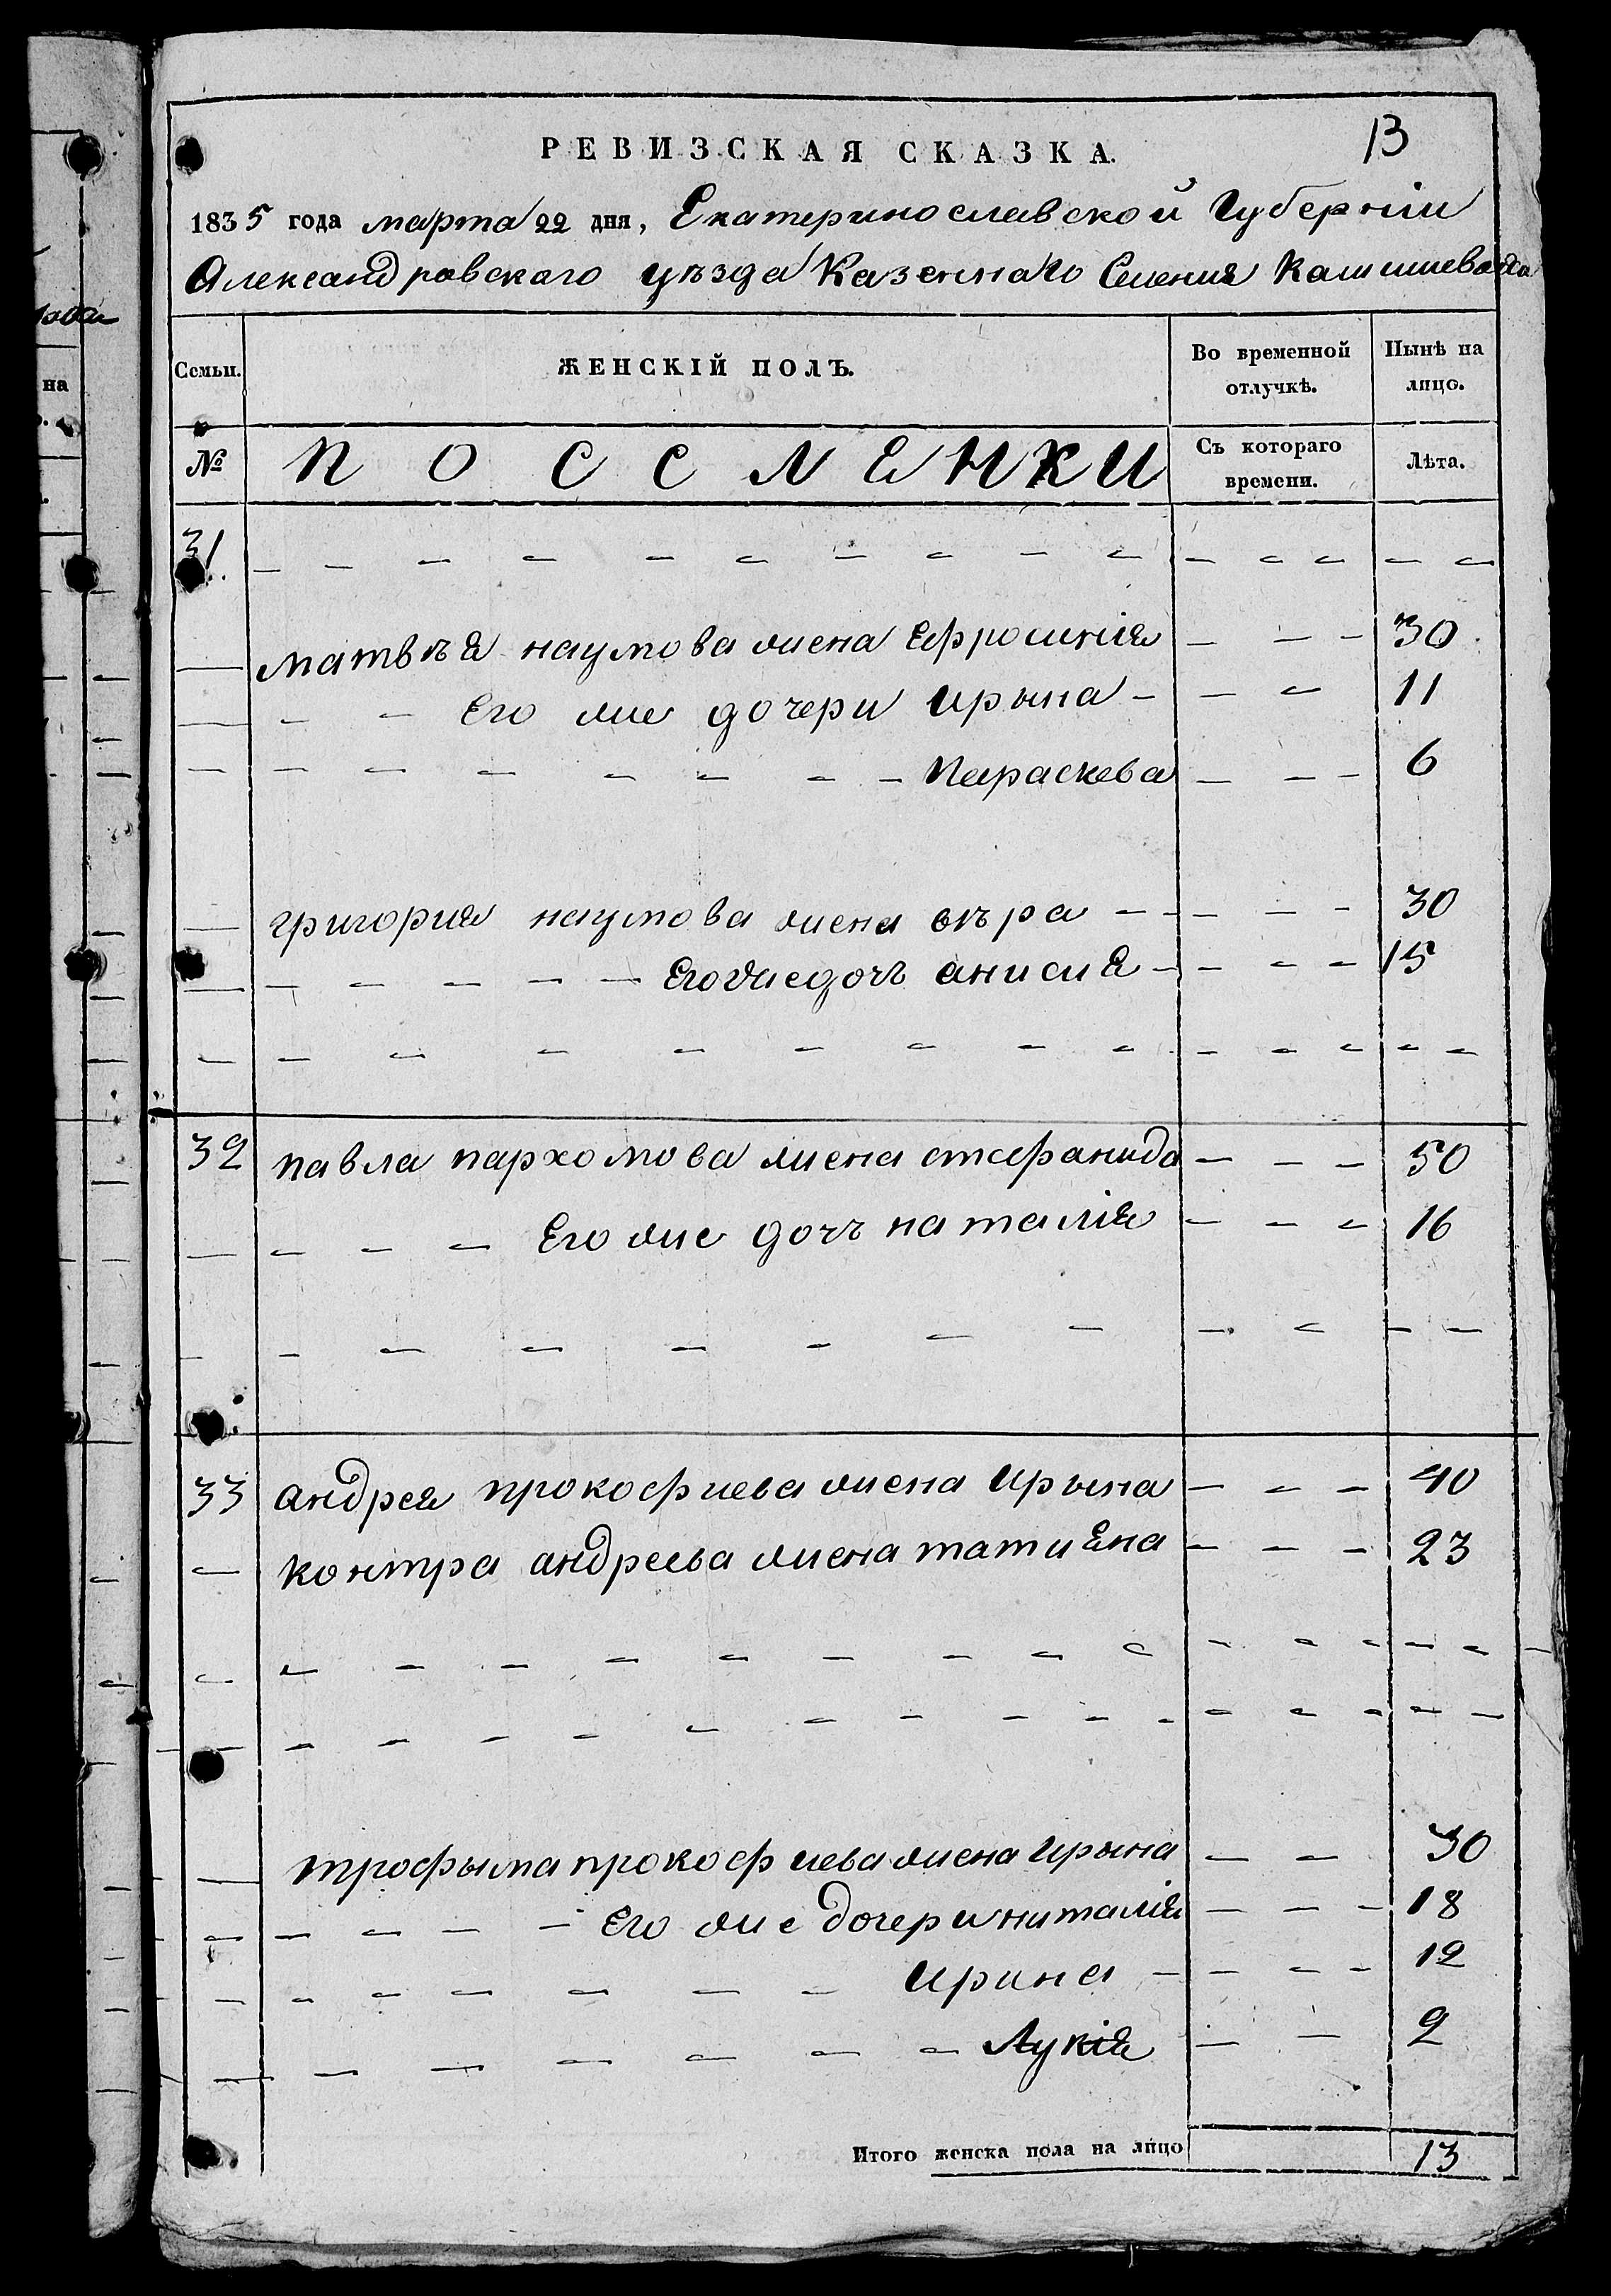 13
РЕВИЗСКАЯ СКАЗКА.
1835 года марта 22 дня, Екатеринославской Губерніи
Александровскаго уѣзда Казеннаго Селения
на
Семьи.
ЖЕНСКІЙ ПОЛЪ.
Во временной отлучкѣ.
Нынѣ на лицо.
№
ПОССЛЕНКИ
Съ котораго времени.
Лѣта.
31.
матвѣя наумова жена Ефросинія 30
Его же дочери Ирына 11
Параскева 6
григория наумова жена вѣра 30
Его же дочь анисия 15
32 павла пархомова жена стефанида 50
Его же дочь наталія 16
33 андрея прокофиева жена Ирына 40
контра андреева жена татияна 23
трофыма прокофиева жена Ирына 30
Его же дочери наталія 18
Ирина 12
Лукія 2
Итого женска пола на лицо 13